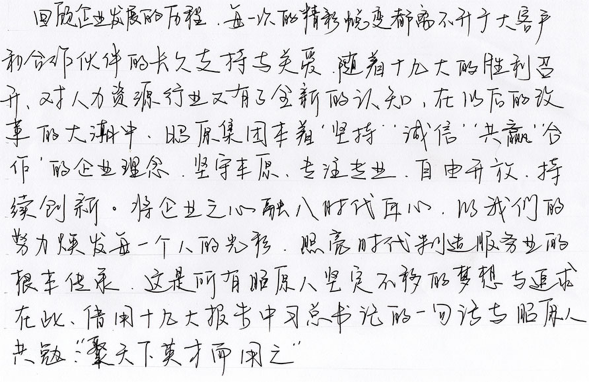 回顾企业发展的历程，每一次的精彩蜕变都离不开广大客户
和合作伙伴的长久支持与关爱。随着十九大的胜利召
开，对人力资源行业又有了全新的认知，在以后的改
革的大潮中，昭原集团本着"坚持""诚信""共赢""合
作"的企业理念，坚守本原、专注专业、自由开放、持
续创新。将企业之心融入时代耳心，以我们的
努力焕发每一个人的光彩，照亮时代制造服务业的
根本使命，这是所有昭原人坚定不移的梦想与追求
在此、借用十九大报告中习总书记的一句话与昭原人
共勉："聚天下英才而用之"